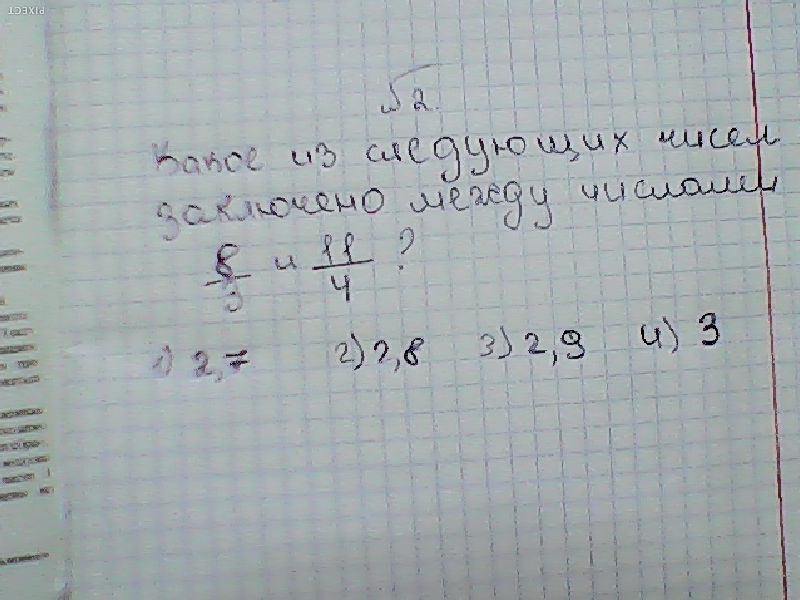 PIXECT
№2.
Какое из следующих чисел
заключено между числами
8/3 и 11/4 ?
1) 2,7 2) 2,8 3) 2,9 4) 3